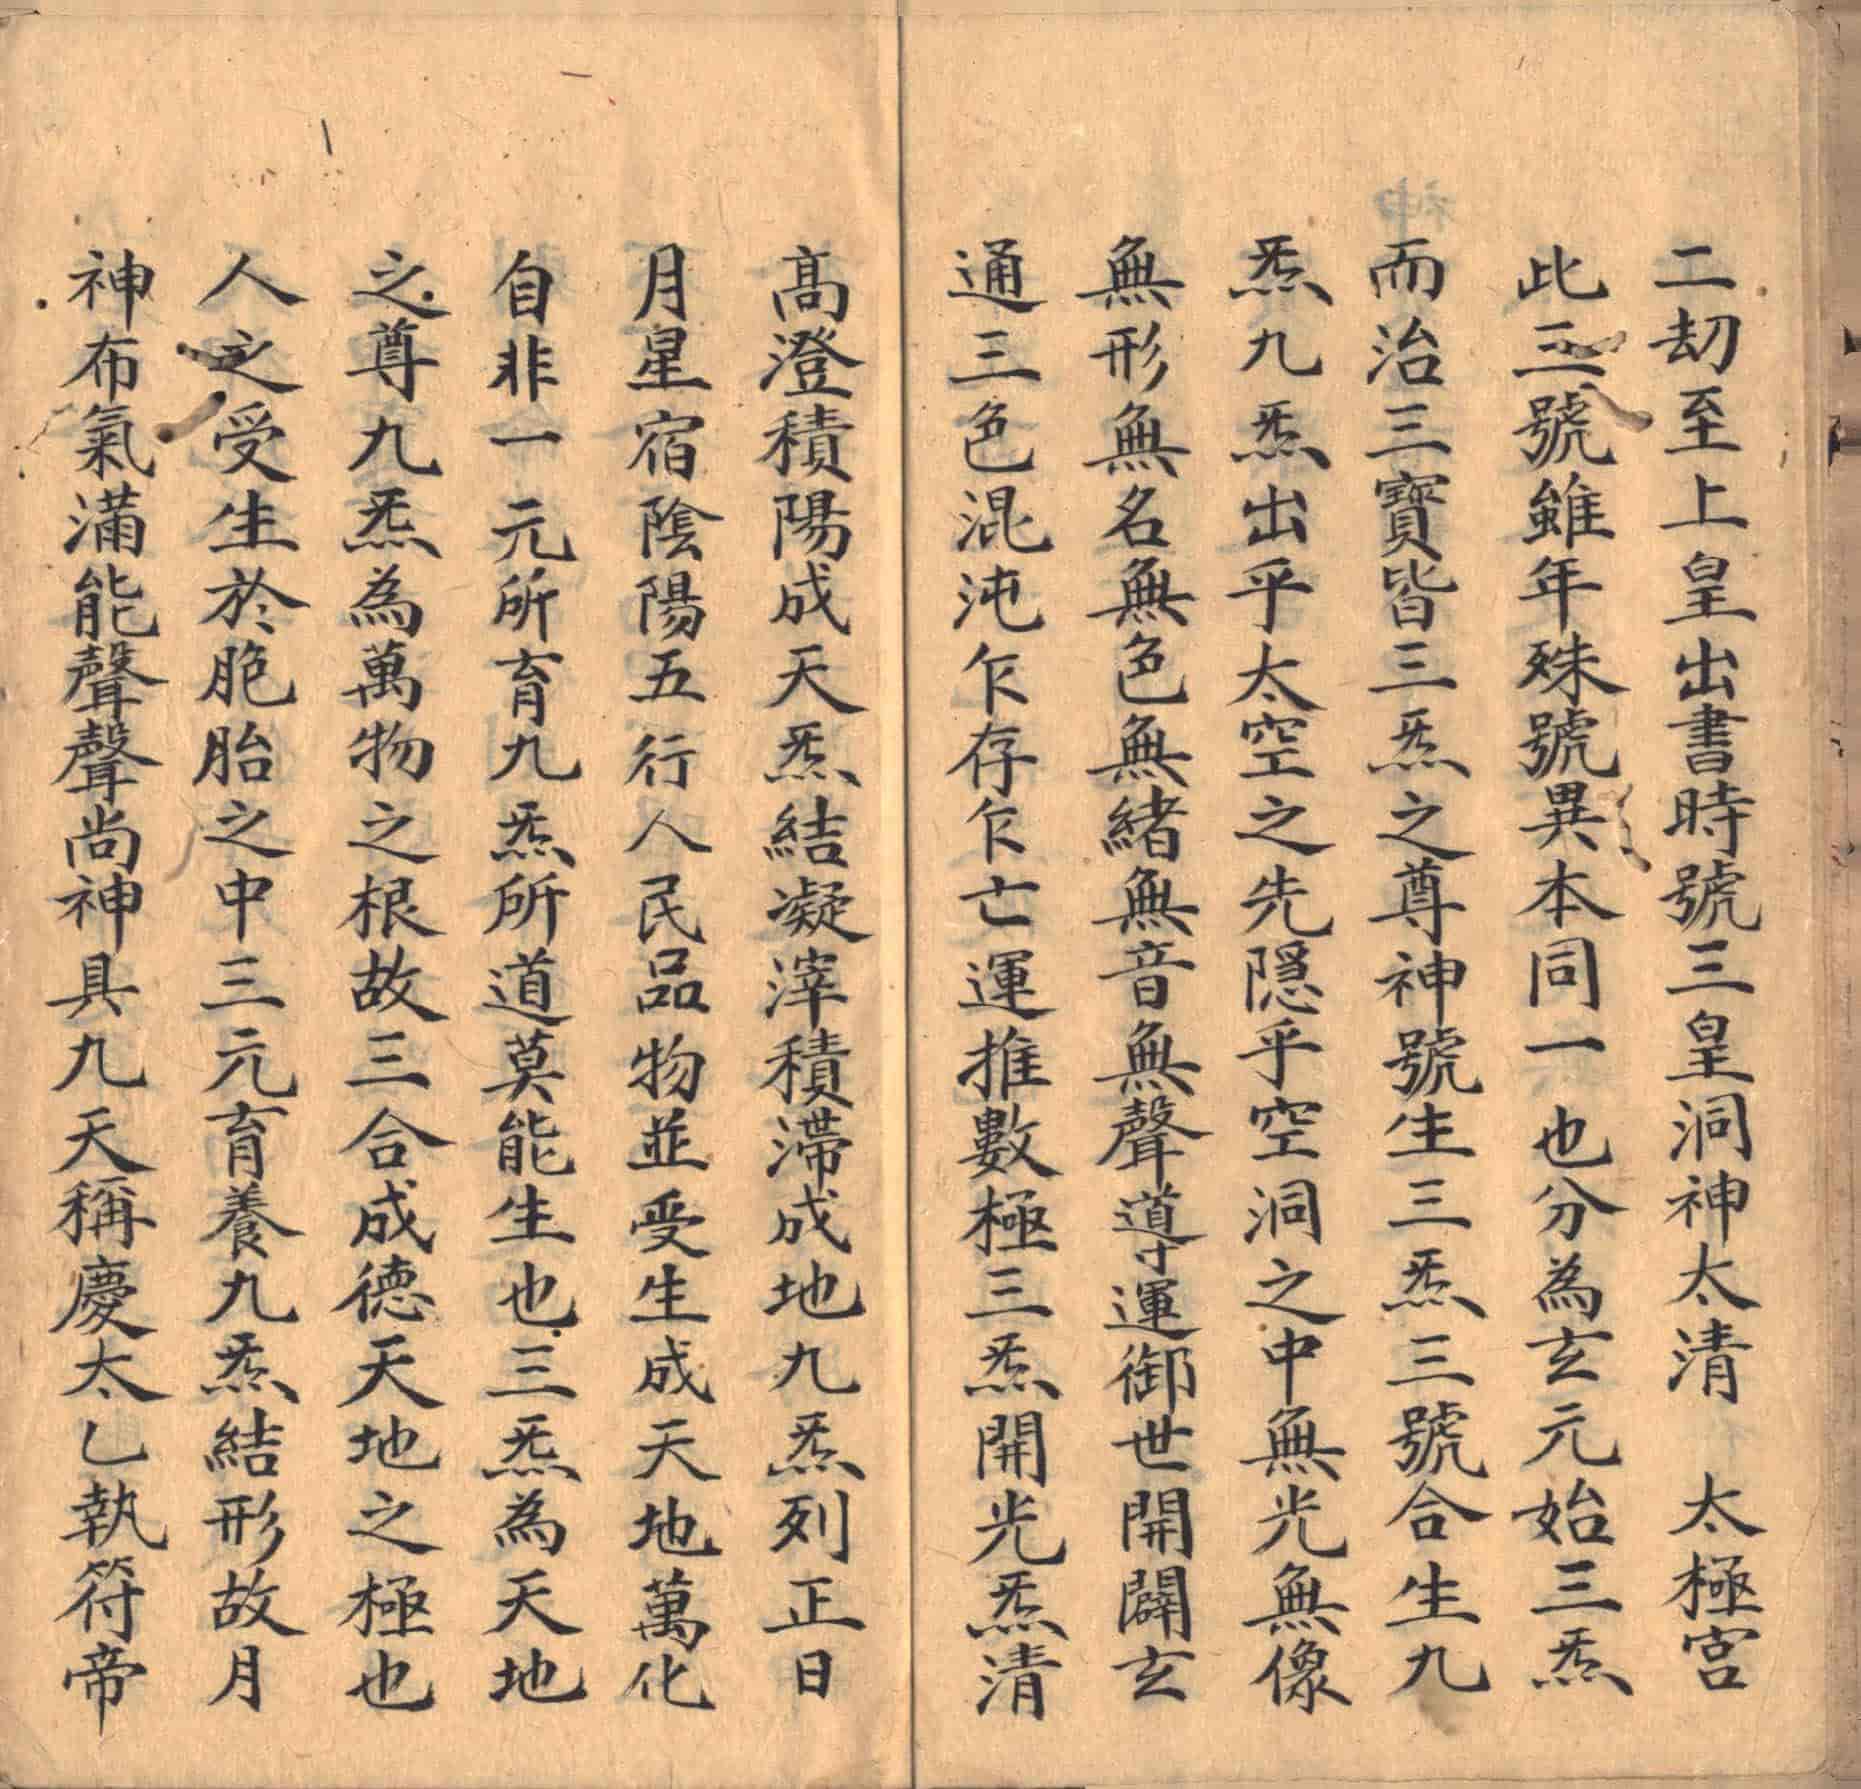 二刧至上皇出書時號三皇洞神太清　太極宮
此三號雖年殊號異本同一也分為玄元始三炁
而治三寶皆三炁之尊神號生三炁三號合生九
炁九炁出乎太空之先隱乎空洞之中無光無像
無形無名無色無緒無音無聲導運御世開闢玄
通三色混沌乍存乍亡運推數極三炁開光炁清
高澄積陽成天炁結凝滓積滯成地九炁列正日
月星宿陰陽五行人民品物並受生成天地萬化
自非一元所育九炁所道莫能生也三炁為天地
之尊九炁為萬物之根故三合成德天地之極也
人之受生於胞胎之中三元育養九炁結形故月
神布氣滿能聲聲尚神具九天稱慶太乙執符帝